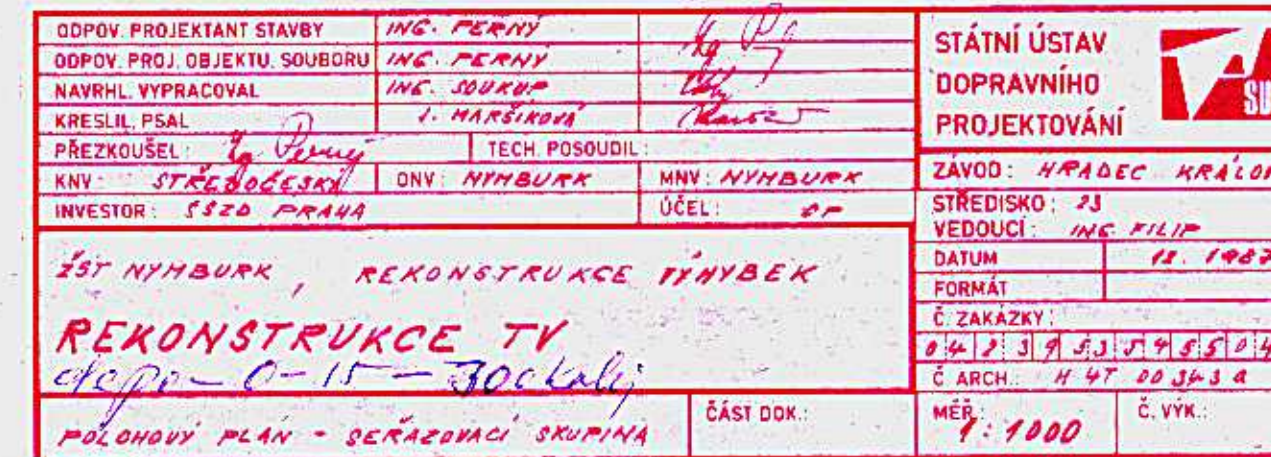 ODPOV. PROJEKTANT STAVBY ING. PERNÝ
ODPOV. PROJ. OBJEKTU, SOUBORU ING. PERNÝ
NAVRHL, VYPRACOVAL ING. SOUKUP
KRESLIL, PSAL J. MARŠÍKOVÁ
PŘEZKOUŠEL: Ing Perný TECH. POSOUDIL:
KNV: STŘEDOČESKÝ ONV: NYMBURK MNV: NYMBURK
INVESTOR: SSZD PRAHA ÚČEL:
ŽST NYMBURK, REKONSTRUKCE VÝHYBEK
REKONSTRUKCE TV
depo - 0-15 -
POLOHOVÝ PLÁN - SEŘAZOVACÍ SKUPINA
ČÁST DOK.:
STÁTNÍ ÚSTAV
DOPRAVNÍHO
PROJEKTOVÁNÍ
SU
ZÁVOD: HRADEC KRÁLOV
STŘEDISKO: 23
VEDOUCÍ: ING FILIP
DATUM 12. 1987
FORMÁT
Č. ZAKÁZKY:
Č. ARCH.: H 47 00 343 a
MĚŘ.: 1:1000
Č. VÝK.: